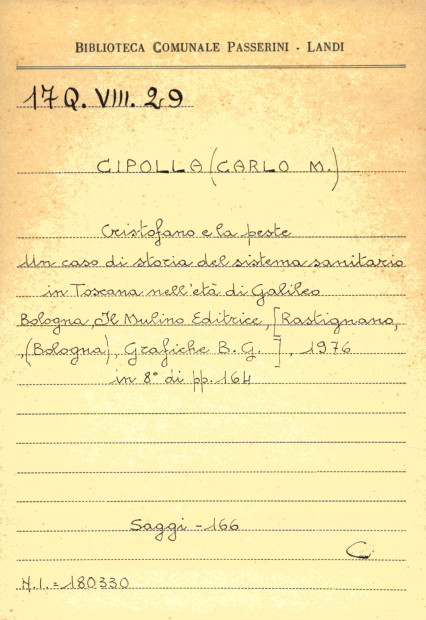 BIBLIOTECA COMUNALE PASSERINI - LANDI
17 Q. VIII. 29
CIPOLLA (CARLO M.)
Cristofano e la peste
Un caso di storia del sistema sanitario
in Toscana nell'età di Galileo
Bologna, Il Mulino Editrice, [Rastignano,
(Bologna), Grafiche B. G. ], 1976
in 8° di pp. 164
Saggi - 166
C
N.I. = 180330